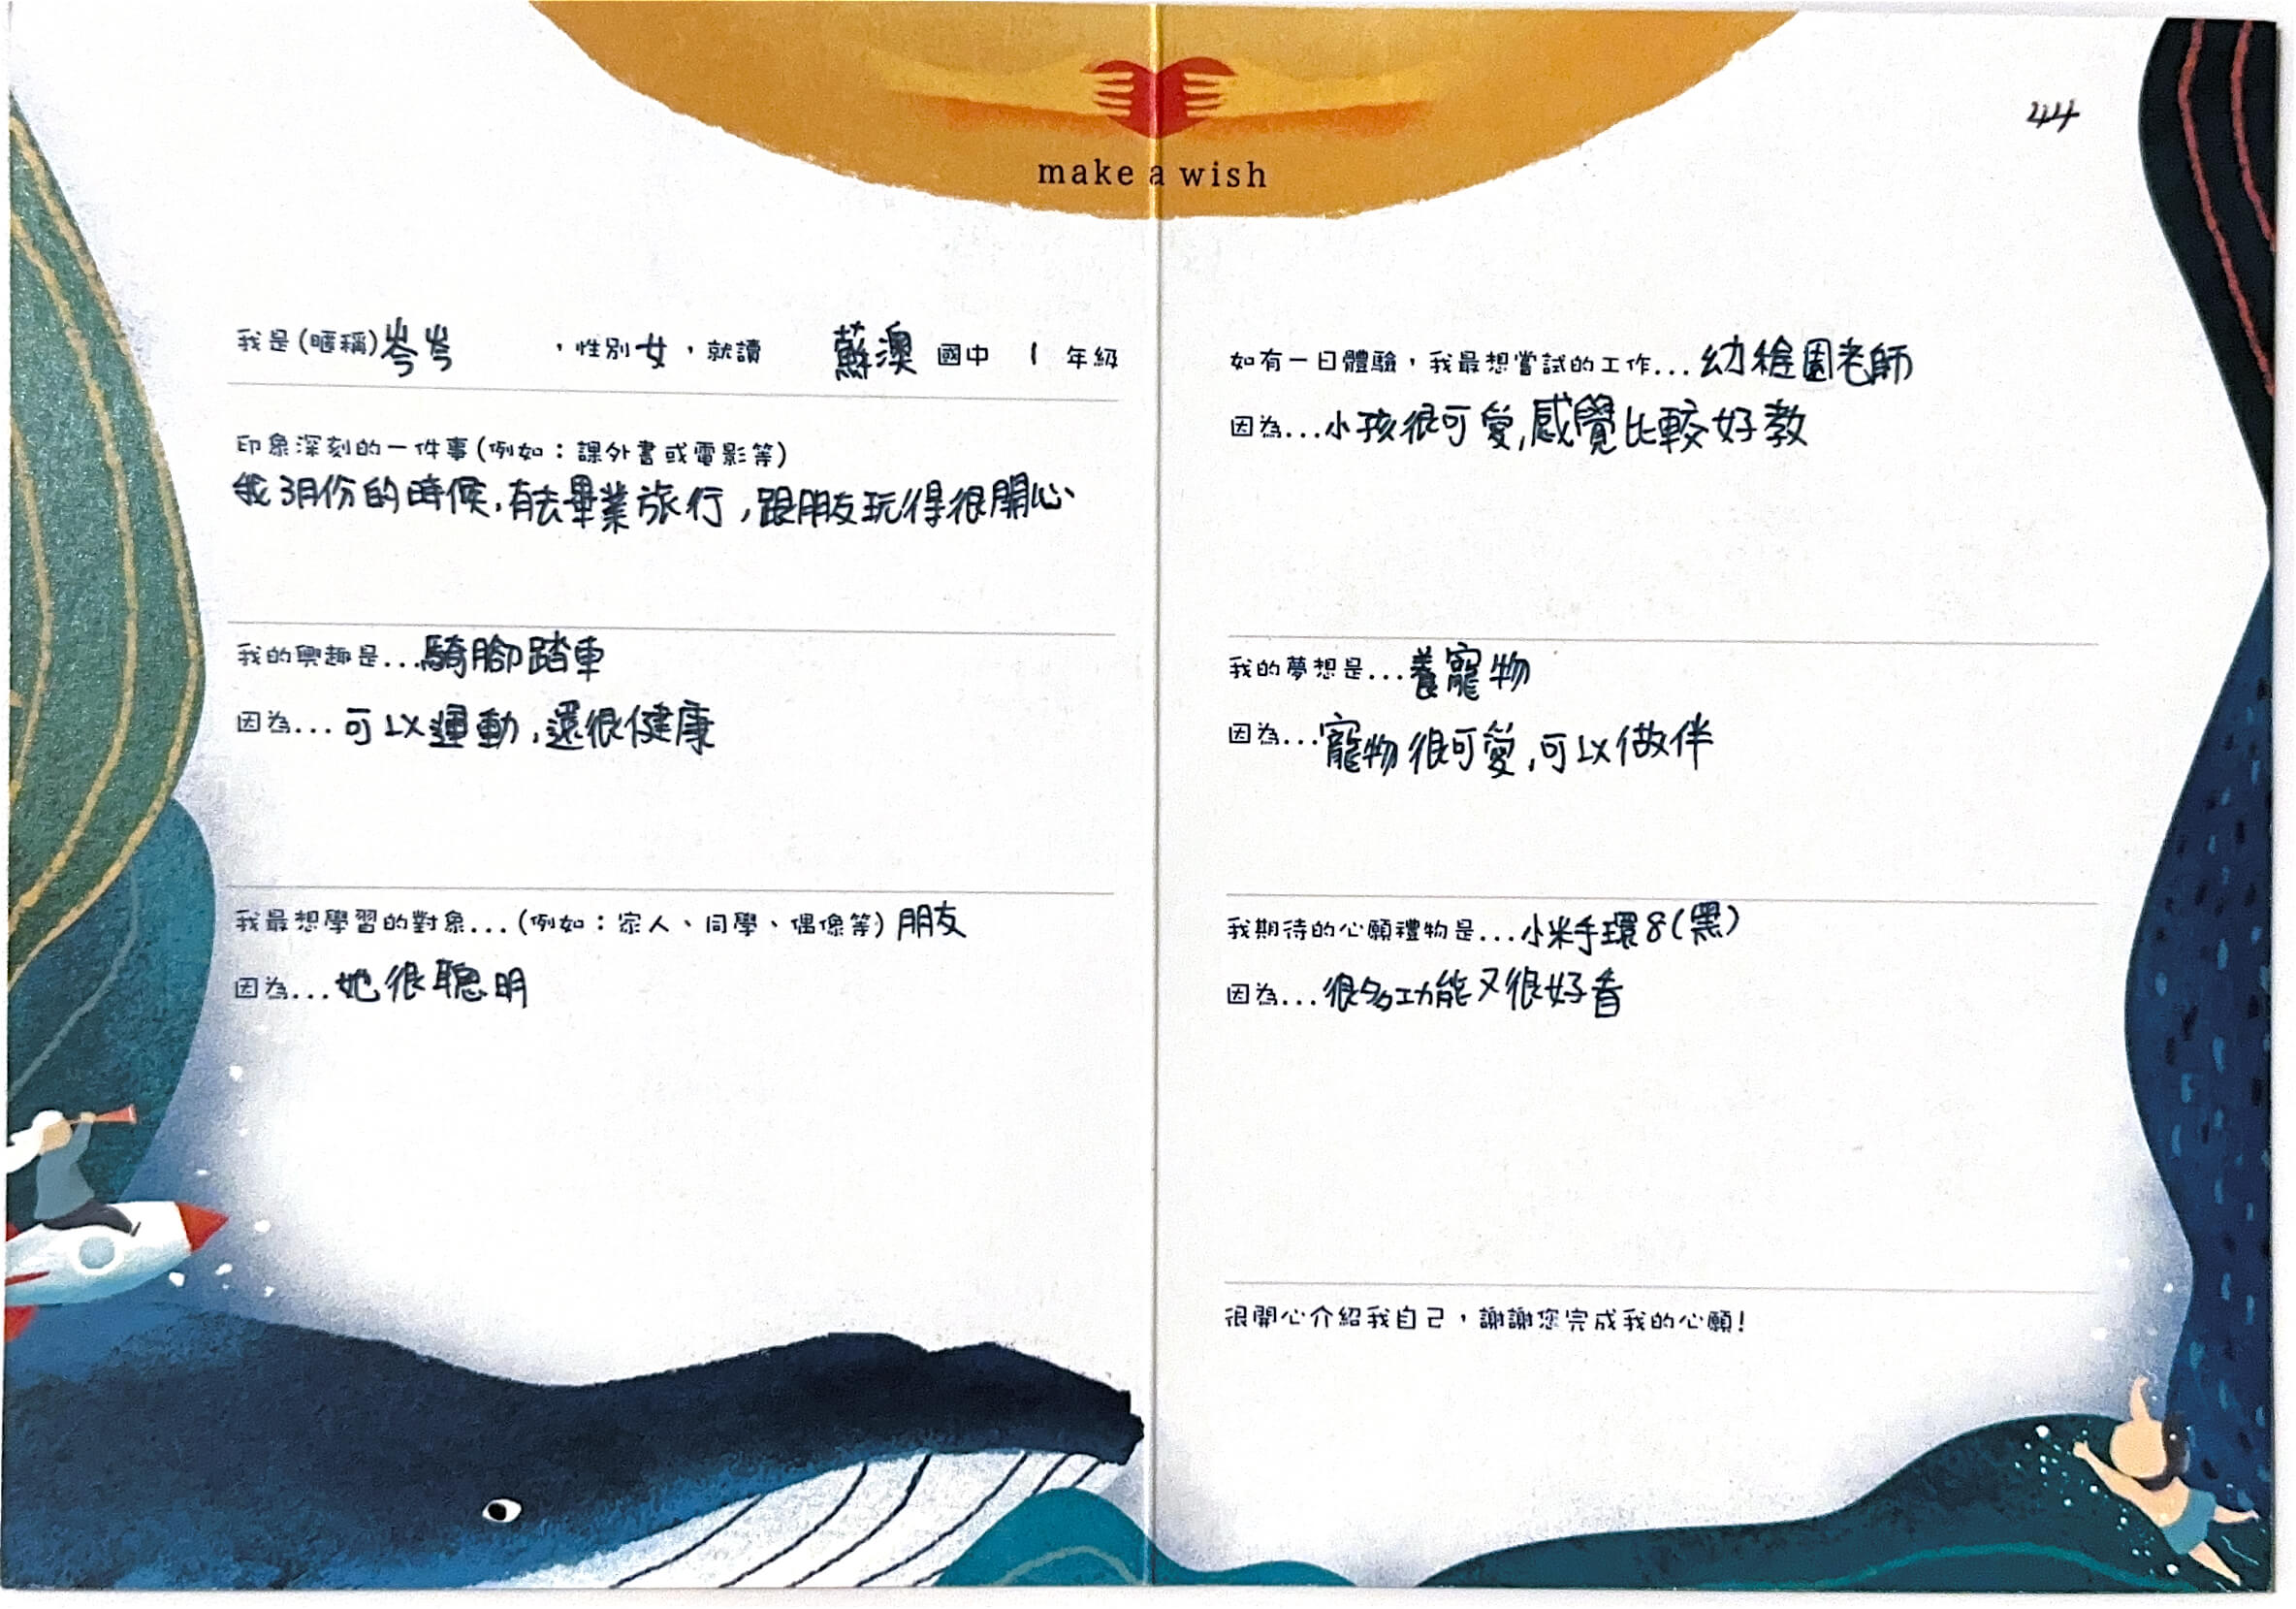 make a wish
44
我是(暱稱)岑岑，性別女，就讀 蘇澳 國中 1 年級
印象深刻的一件事(例如：課外書或電影等)
我3月份的時候,有去畢業旅行,跟朋友玩得很開心
我的興趣是...騎腳踏車
因為...可以運動,還很健康
我最想學習的對象...(例如：家人、同學、偶像等)朋友
因為...她很聰明
如有一日體驗，我最想嘗試的工作...幼稚園老師
因為...小孩很可愛,感覺比較好教
我的夢想是...養寵物
因為...寵物很可愛,可以做伴
我期待的心願禮物是...小米手環8(黑)
因為...很多功能又很好看
很開心介紹我自己，謝謝您完成我的心願!